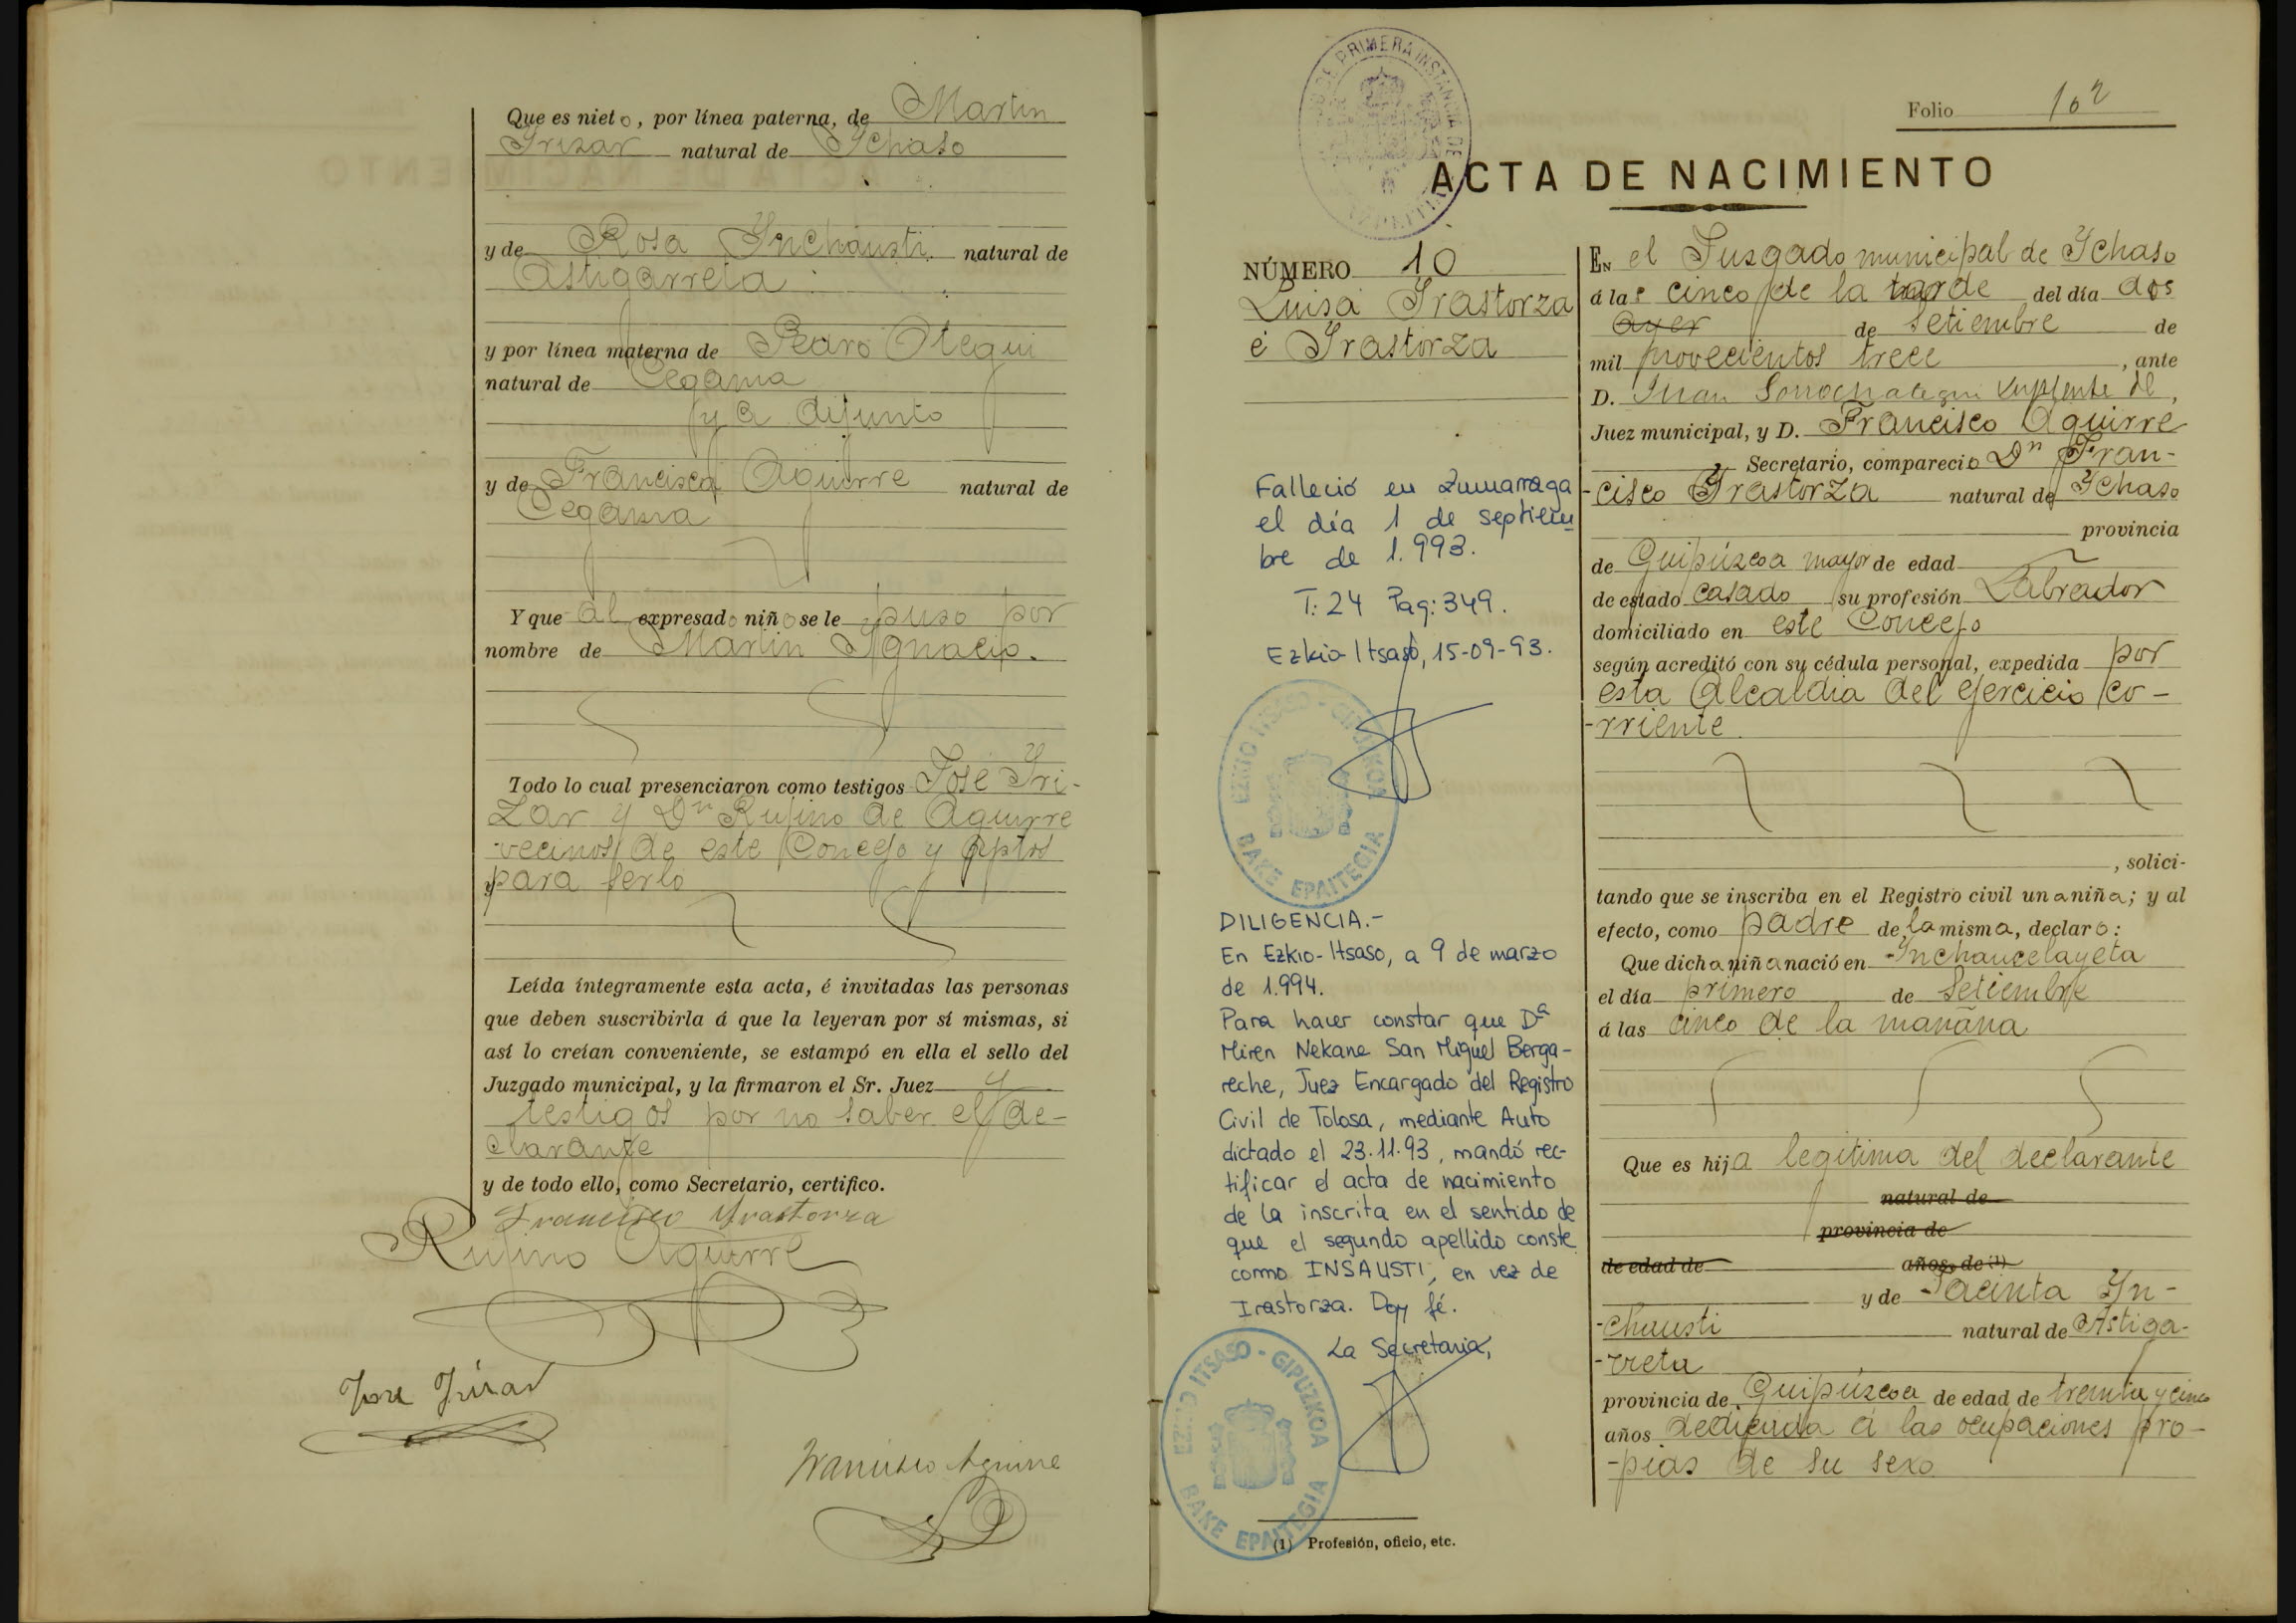 Que es nieto, por línea paterna, de Martin
Irizar natural de Ichaso
y de Rosa Inchausti natural de
Astigarreta
y por línea materna de Pedro Otegui
natural de Cegama
ya difunto
y de Francisca Aguirre natural de
Cegama
Y que al expresado niño se le puso por
nombre de Martin Ignacio.
Todo lo cual presenciaron como testigos José Iri-
zar y Dn Rufino de Aguirre
vecinos de este Concejo y aptos
para serlo
Leída íntegramente esta acta, é invitadas las personas
que deben suscribirla á que la leyeran por sí mismas, si
así lo creían conveniente, se estampó en ella el sello del
Juzgado municipal, y la firmaron el Sr. Juez y
testigos por no saber el de-
clarante
y de todo ello, como Secretario, certifico.
Francisco Yrastorza
Rufino Aguirre
Jose Irizar
Francisco Aguirre
Folio 102
JUZGADO DE PRIMERA INSTANCIA DE AZPEITIA
ACTA DE NACIMIENTO
NÚMERO 10
Luisa Irastorza
é Irastorza
Falleció en Zumarraga
el día 1 de septiem
bre de 1.993.
T: 24 Pag: 349.
Ezkio-Itsaso, 15-09-93.
EZKIO ITSASO - GIPUZKOA
BAKE EPAITEGIA
DILIGENCIA.-
En Ezkio-Itsaso, a 9 de marzo
de 1.994.
Para hacer constar que Dª
Miren Nekane San Miguel Berga-
reche, Juez Encargado del Registro
Civil de Tolosa, mediante Auto
dictado el 23.11.93, mandó rec-
tificar el acta de nacimiento
de la inscrita en el sentido de
que el segundo apellido conste
como INSAUSTI, en vez de
Irastorza. Doy fé.
La Secretaria,
EZKIO ITSASO - GIPUZKOA
BAKE EPAITEGIA
(1) Profesión, oficio, etc.
EN el Juzgado municipal de Ichaso
á las cinco de la tarde del día dos
ayer de Setiembre de
mil novecientos trece, ante
D. Juan Suplente del,
Juez municipal, y D. Francisco Aguirre
Secretario, compareció Dn Fran-
-cisco Irastorza natural de Ichaso
provincia
de Guipúzcoa mayor de edad
de estado casado su profesión Labrador
domiciliado en este Concejo
según acreditó con su cédula personal, expedida por
esta Alcaldia del ejercicio co-
-rriente
, solici-
tando que se inscriba en el Registro civil una niña; y al
efecto, como padre de la misma, declaro:
Que dicha niña nació en Inchaucelayeta
el día primero de Setiembre
á las cinco de la mañana
Que es hija legitima del declarante
natural de
provincia de
de edad de años, de (1)
y de Jacinta In-
-chausti natural de Astiga-
-rreta
provincia de Guipúzcoa de edad de treinta y cinco
años dedicada á las ocupaciones pro-
-pias de su sexo